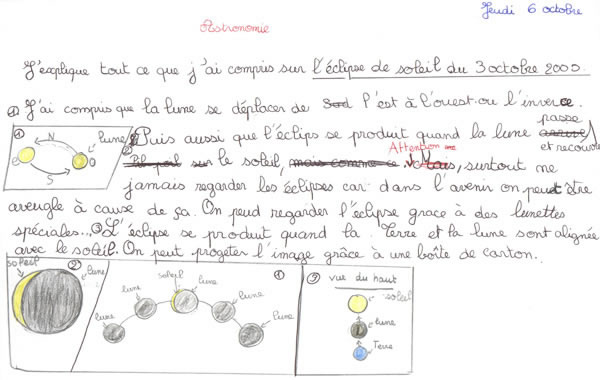 Jeudi 6 octobre
Astronomie
J'explique tout ce que j'ai compris sur l'éclipse de soleil du 3 octobre 2005.
① J'ai compris que la lune se déplacer de Sud l'est à l'ouest ou l'inverce.
passe
② Puis aussi que l'éclips se produit quand la lune arrive
et recouvre
Attention
sur le soleil, mais comme ce Mais, surtout ne
jamais regarder les éclipses car dans l'avenir on peut être
aveugle à cause de ça. On peud regarder l'éclipse grace à des lunettes
spéciales... ③ L'éclipse se produit quand la Terre et la lune sont alignée
avec le soleil. On peut progeter l'image grâce à une boîte de carton.
1
N
lune
E
O
S
soleil
②
lune
①
lune
lune
soleil
lune
lune
lune
③
vue du haut
soleil
lune
Terre